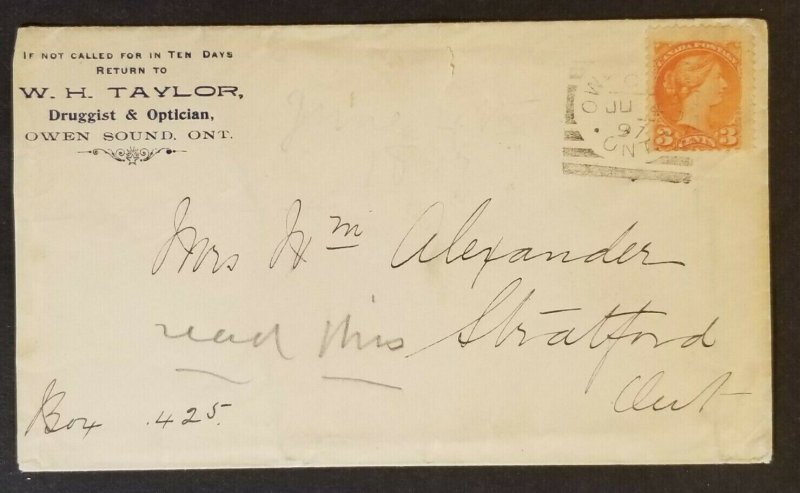 IF NOT CALLED FOR IN TEN DAYS
RETURN TO
W. H. TAYLOR,
Druggist & Optician,
OWEN SOUND, ONT.
CANADA POSTAGE
3 CENTS 3
OW
JU
97
ONT
Mrs Wm Alexander
read this Stratford
Ont
Box 425.